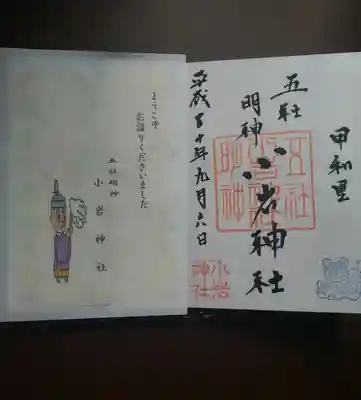 甲和里
五社
明神
小岩神社
平成三十年九月六日
五社
明神
小岩
神社
ようこそ
お詣りくださいました
五社明神
小岩神社